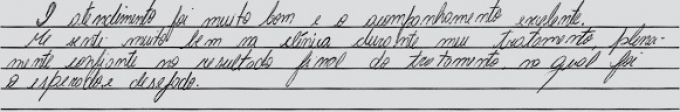 O atendimento foi muito bom e o acompanhamento excelente.
Me senti muito bem na clínica durante meu tratamento, plena-
mente confiante no resultado final do tratamento, no qual foi
o esperado e desejado.